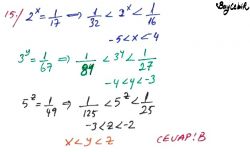 15-) 2^x = 1/17 ⇒ 1/32 < 2^x < 1/16
-5 < x < 4
3^y = 1/67 ⇒ 1/81 < 3^y < 1/27
-4 < y < -3
5^z = 1/49 ⇒ 1/125 < 5^z < 1/25
-3 < z < -2
x < y < z
CEVAP: B